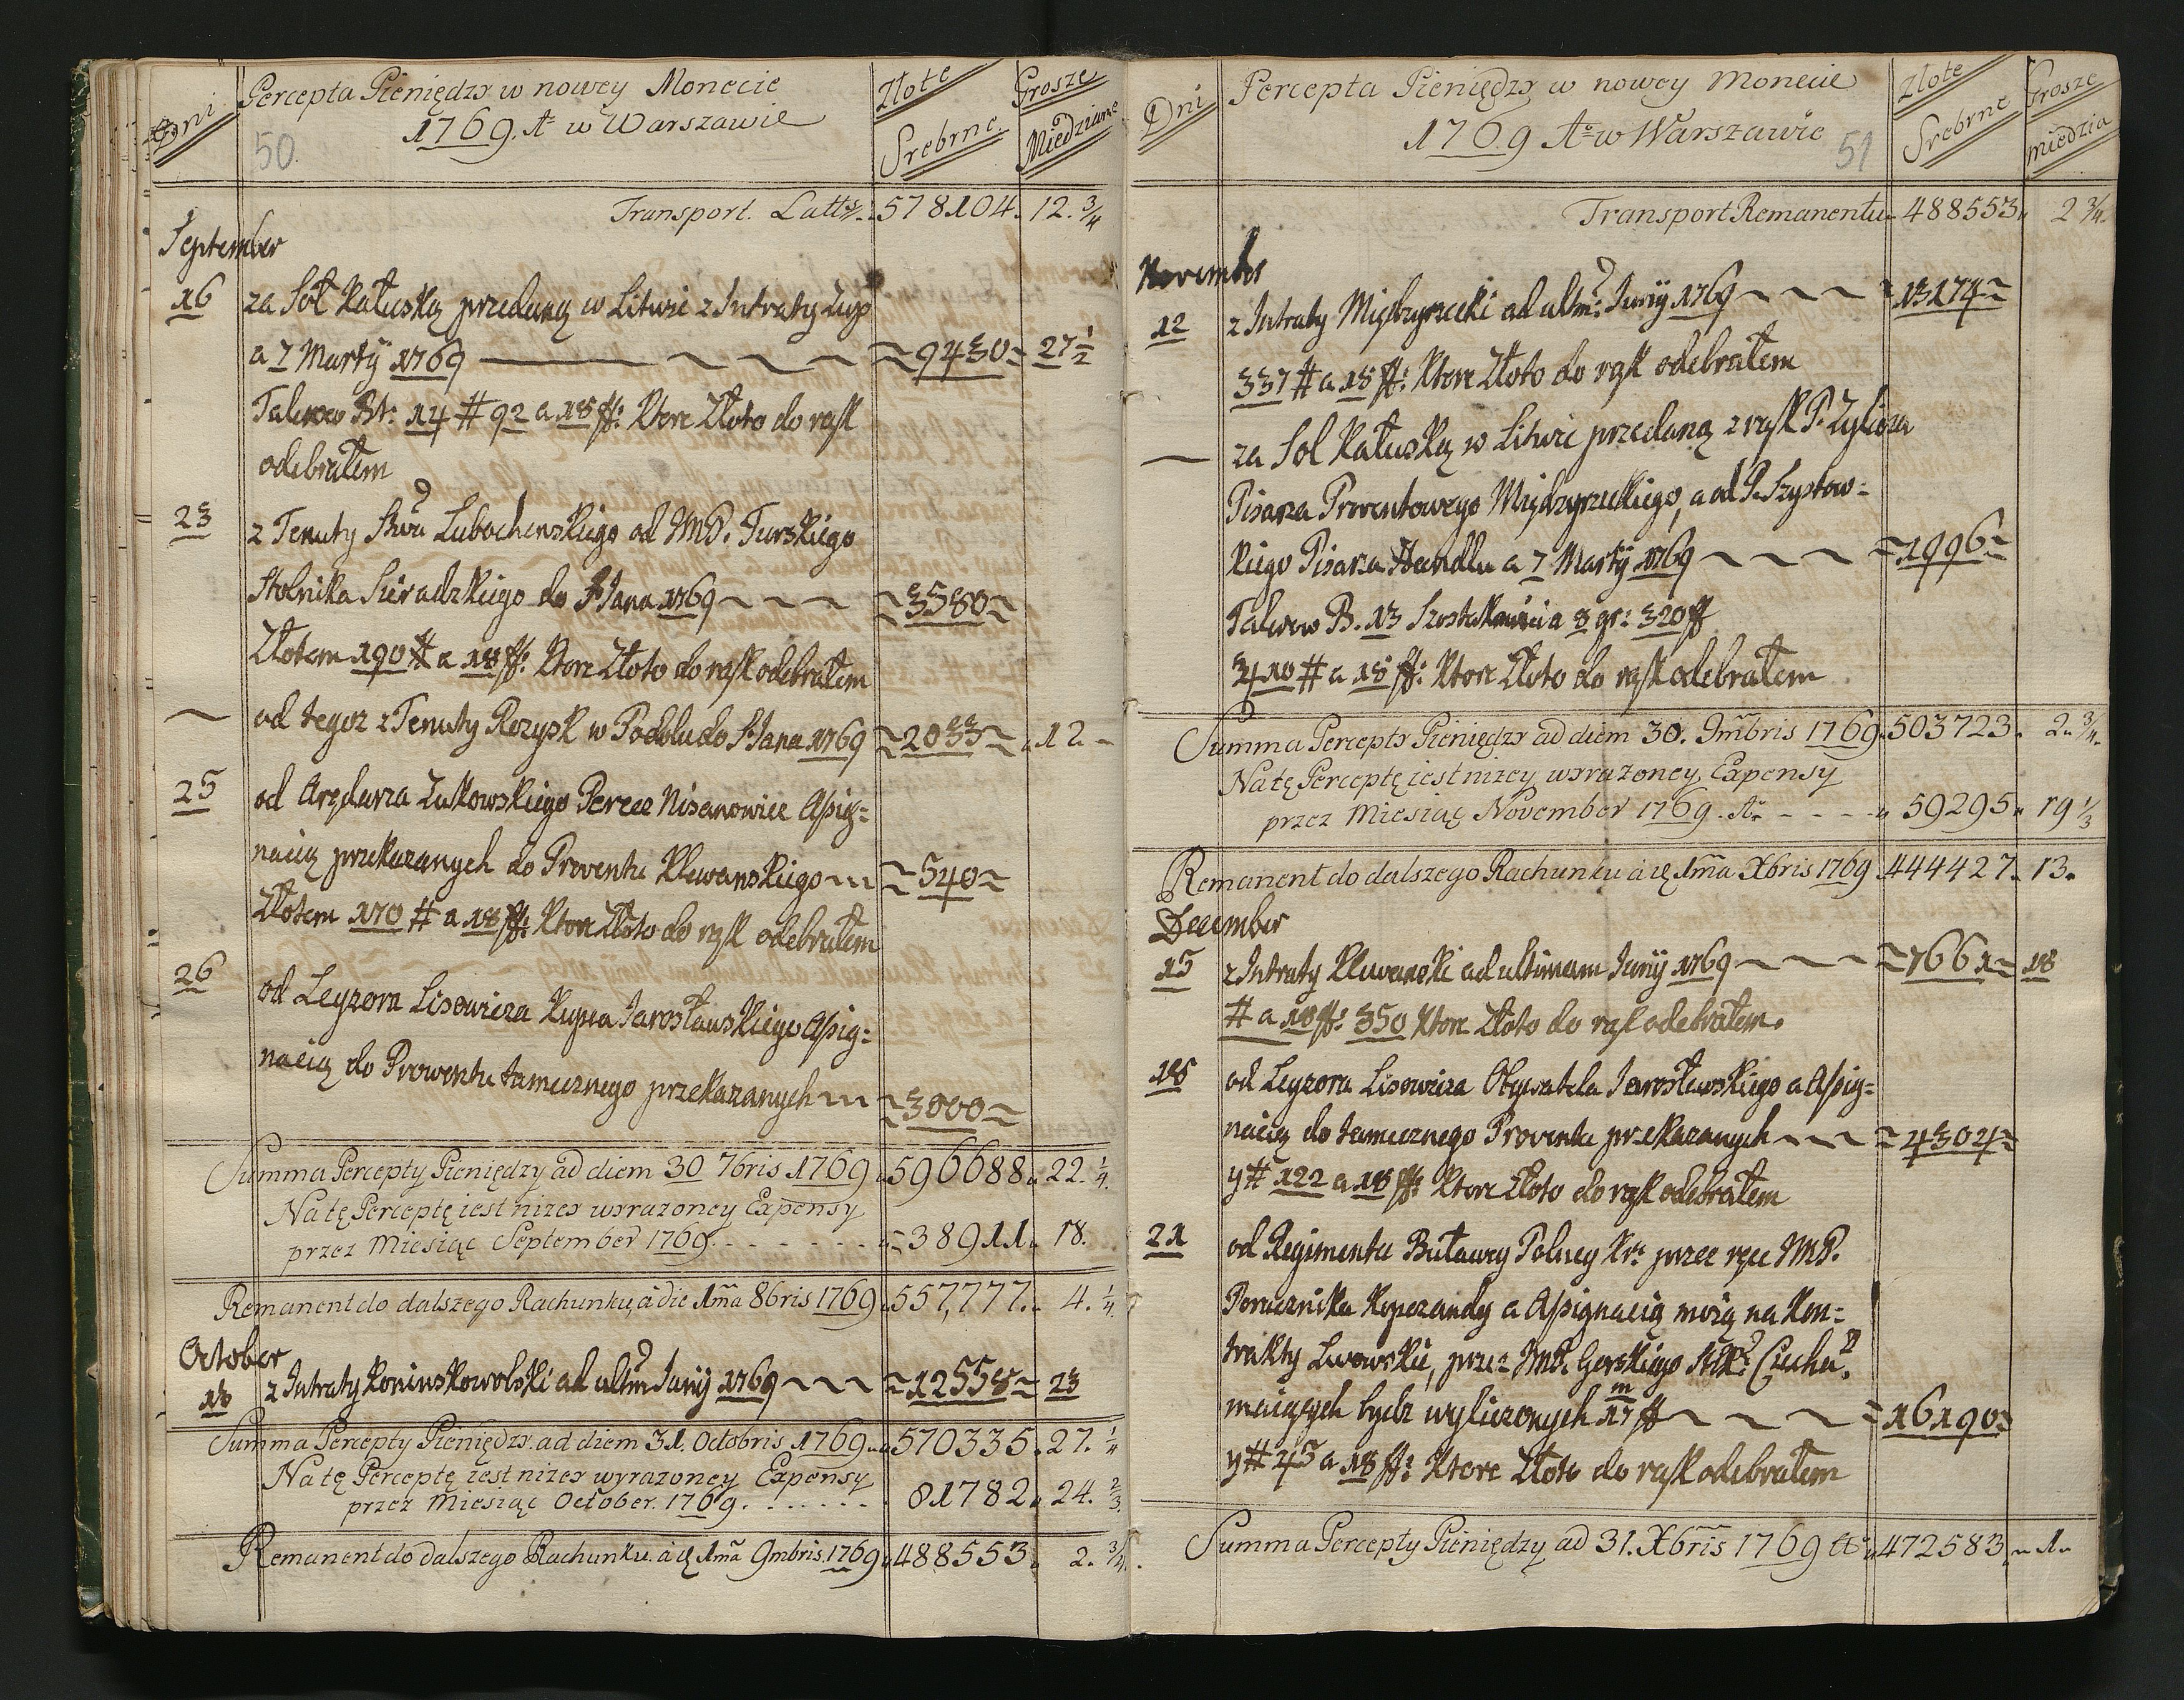 Dni
Percepta Pieniędzy w nowey Monecie
1769. Aº w Warszawie
50.
Złote Srebrne
Grosze Miedziane
Transport. Latt: 578104. 12. 3/4
September
16 za Sol Kałuską przedaną w Litwie z Intraty Żup
a 7 Martÿ 1769 9430 27 1/2
Talerow Bt: 14 # 92 a 18 ff: Ktore Złoto do rąk
odebrałem
23 z Tenuty Lubochenskiego od JMP. Turskiego
Stolnika Sieradzkiego do S Jana 1769 3580
Złotem 190 # a 18 ff: Ktore Złoto do rąk odebrałem
od tegoz z Tenuty Rozysk w Podolu do S Jana 1769 2033 12.
25 od Arędarza Żukowskiego Percec Nisanowicz Assig=
nacią przekazanych do Proventu Klewanskiego 540
Złotem 170 # a 18 ff: Ktore Złoto do rąk odebrałem
26 od Leyzora Lisowicza Kupca Jarosławskiego Assig=
nacią do Prowentu tamecznego przekazanych 3000
Summa Percepty Pieniędzy ad diem 30 7bris 1769 596688. 22. 1/4.
Na tę Perceptę iest nizey wyrazoney Expensy
przez Miesiąc September 1769. 38911. 18.
Remanent do dalszego Rachunku, à die 1ma 8bris 1769 557,777. 4. 1/4
October
18 z Intraty Koninskowolski ad ultm Junÿ 1769 12558 23
Summa Percepty Pieniędzy ad diem 31. Octobris 1769 570335. 27. 1/4
Na tę Perceptę iest nizey wyrazoney Expensy
przez Miesiąc October. 1769. 81782. 24. 2/3.
Remanent do dalszego Rachunku. à 1ma 9mbris. 1769 488553. 2. 3/4.
Dni
Percepta Pieniędzy w nowey Monecie
1769 Aº w Warszawie
51
Złote Srebrne
Grosze miedzia
Transport Remanentu 488553. 2 3/4.
November
12 z Intraty Międzyrzecki ad ultm: Junÿ 1769 13174
337 # a 18 ff: Ktore Złoto do rąk odebrałem
za Sol Kałuską w Litwie przedaną z rąk P. Zylicza
Pisarza Proventowego Międzyrzeckiego, a od P. Szystow=
kiego Pisarza Handlu a 7 Martÿ 1769 1996
Talerow B. 13 a 8 gr: 320 ff
410 # a 18 ff: Ktore Złoto do rąk odebrałem
Summa Percepty Pieniędzy ad diem 30. 9mbris 1769. 503723. 2. 3/4.
Na tę Perceptę iest nizey wyrazoney Expensy
przez Miesiąc November 1769. Aº 59295. 19 1/3
Remanent do dalszego Rachunku à 1ma Xbris 1769 444427. 13.
December
15 z Intraty Klewanski ad ultimam Junÿ 1769 7661 18
# a 18 ff: 350 Ktore Złoto do rąk odebrałem.
18 od Leyzora Lisowicza Obywatela Jarosławskiego a Assig=
nacią do tamecznego Proventu przekazanych 4304
y # 122 a 18 ff: Ktore Złoto do rąk odebrałem
21 od Regimentu Buławy Polney Kr: przez ręce JMP.
Porucznika Koperandy a Assignacią moią na Kon=
trakty Lwowskie, przez JMP. Gorskiego
maiących bydz wyliczonych 17 m ff 16190
y # 45 a 18 ff: Ktore Złoto do rąk odebrałem
Summa Percepty Pieniędzy ad 31. Xbris 1769 Aº 472583. 1.